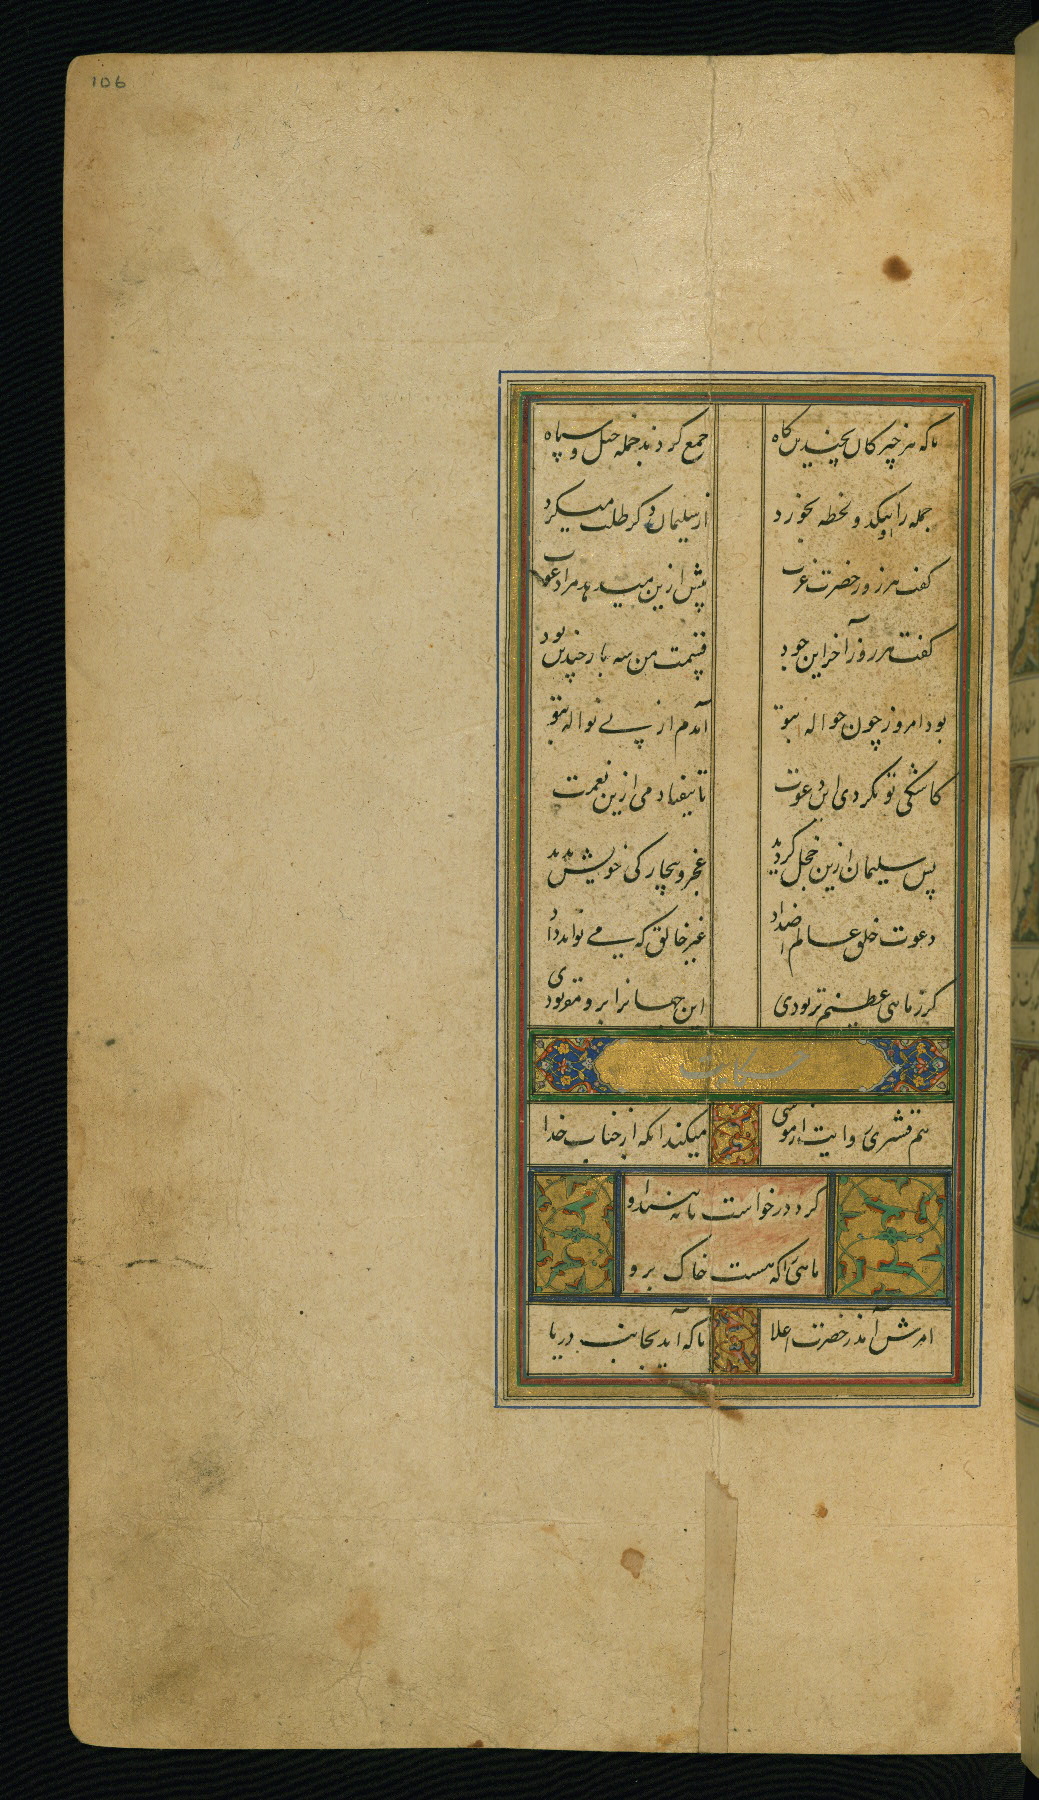 106
تا که هر چیز کان بچندین گاه جمع کردند جمله خیل و سپاه
جمله را او بیکدو لحظه بخورد از سلیمان دگر طلب میکرد
گفت هر روز حضرت عزت پیش ازین میدهد مرا دعوت
گفت هر روز آخر این جود قسمت من سه بار چندین بود
بود امروز چون حواله بتو آمدم از پی نواله بتو
کاشکی تو نکردی این دعوت تا نیفتادمی ازین نعمت
پس سلیمان ازین خجل گردید عجز و بیچارگی خویش بدید
دعوت خلق عالم اضداد غیر خالق که می تواند داد
گر ز ماهی عظیم تر بودی این جهانرا برو مقر بودی
حکایت
هم قشیری روایت از موسی میکند انکه از جناب خدا
کرد درخواست تا نماید او
ماهی را که هست خاک برو
امرش آمد ز حضرت اعلا تا که آید بجانب دریا